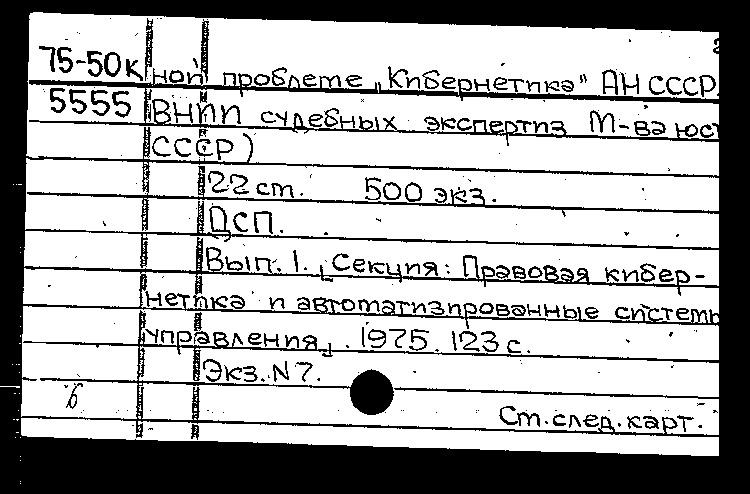 75-50к ной проблеме „Кибернетика" АН СССР.
5555 ВНИИ судебных экспертиз М-ва юст
СССР)
22 ст. 500 экз.
ДСП.
Вып. 1. [Секция: Правовая кибер-
нетика и автоматизированные системы
управления]. 1975. 123 с.
Экз. N 7.
б
См. след. карт.